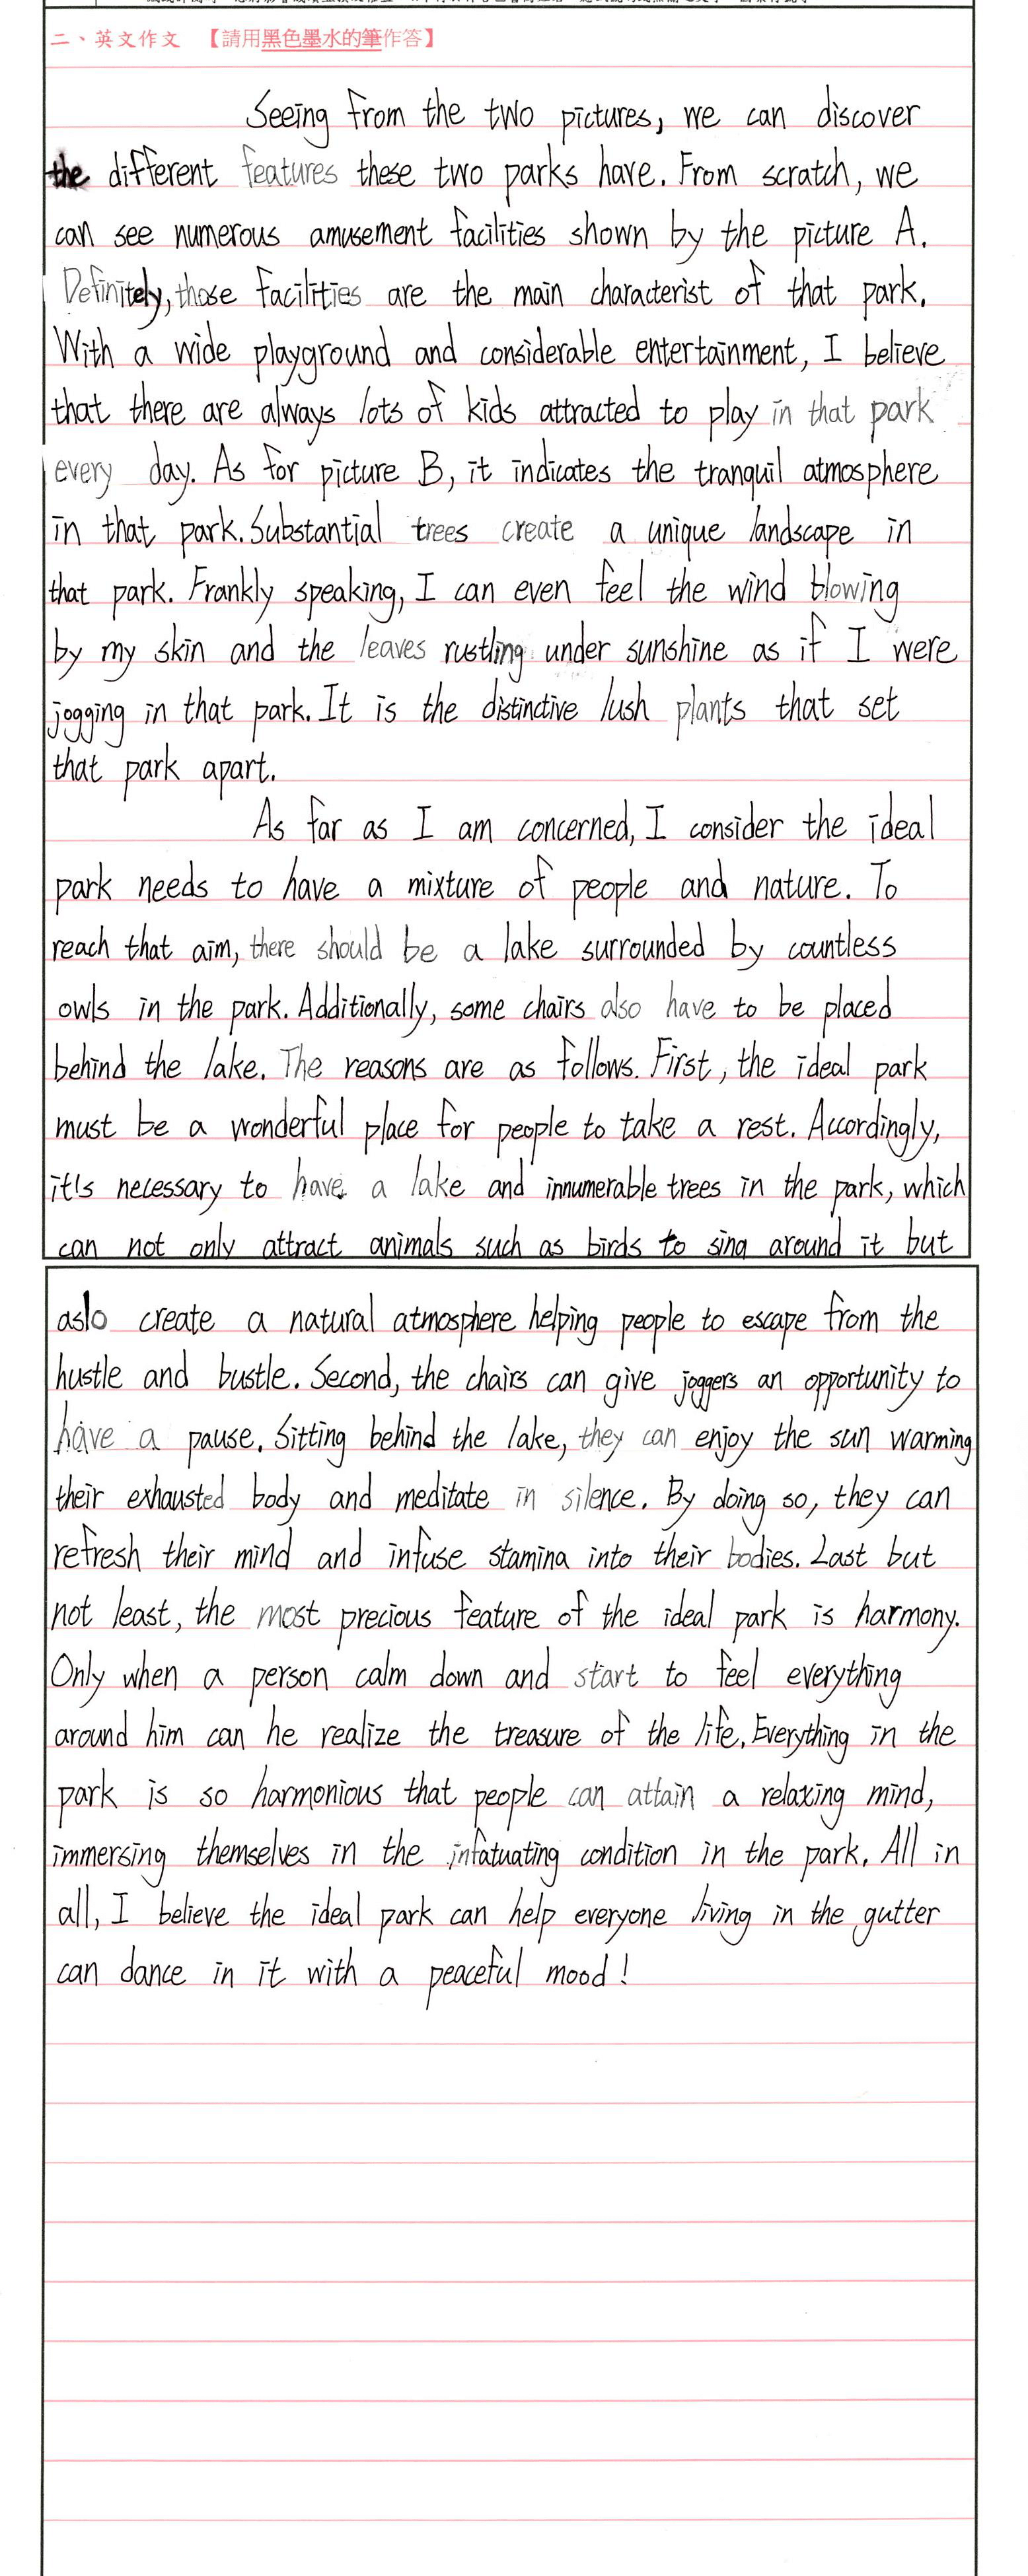 二、英文作文 【請用黑色墨水的筆作答】
Seeing from the two pictures, we can discover
the different features these two parks have. From scratch, we
can see numerous amusement facilities shown by the picture A.
Definitely, those facilities are the main characterist of that park.
With a wide playground and considerable entertainment, I believe
that there are always lots of kids attracted to play in that park
every day. As for picture B, it indicates the tranquil atmosphere
in that park. Substantial trees create a unique landscape in
that park. Frankly speaking, I can even feel the wind blowing
by my skin and the leaves rustling under sunshine as if I were
jogging in that park. It is the distinctive lush plants that set
that park apart.
As far as I am concerned, I consider the ideal
park needs to have a mixture of people and nature. To
reach that aim, there should be a lake surrounded by countless
owls in the park. Additionally, some chairs also have to be placed
behind the lake. The reasons are as follows. First, the ideal park
must be a wonderful place for people to take a rest. Accordingly,
it's necessary to have a lake and innumerable trees in the park, which
can not only attract animals such as birds to sing around it but
aslo create a natural atmosphere helping people to escape from the
hustle and bustle. Second, the chairs can give joggers an opportunity to
have a pause. Sitting behind the lake, they can enjoy the sun warming
their exhausted body and meditate in silence. By doing so, they can
refresh their mind and infuse stamina into their bodies. Last but
not least, the most precious feature of the ideal park is harmony.
Only when a person calm down and start to feel everything
around him can he realize the treasure of the life. Everything in the
park is so harmonious that people can attain a relaxing mind,
immersing themselves in the infatuating condition in the park. All in
all, I believe the ideal park can help everyone living in the gutter
can dance in it with a peaceful mood!